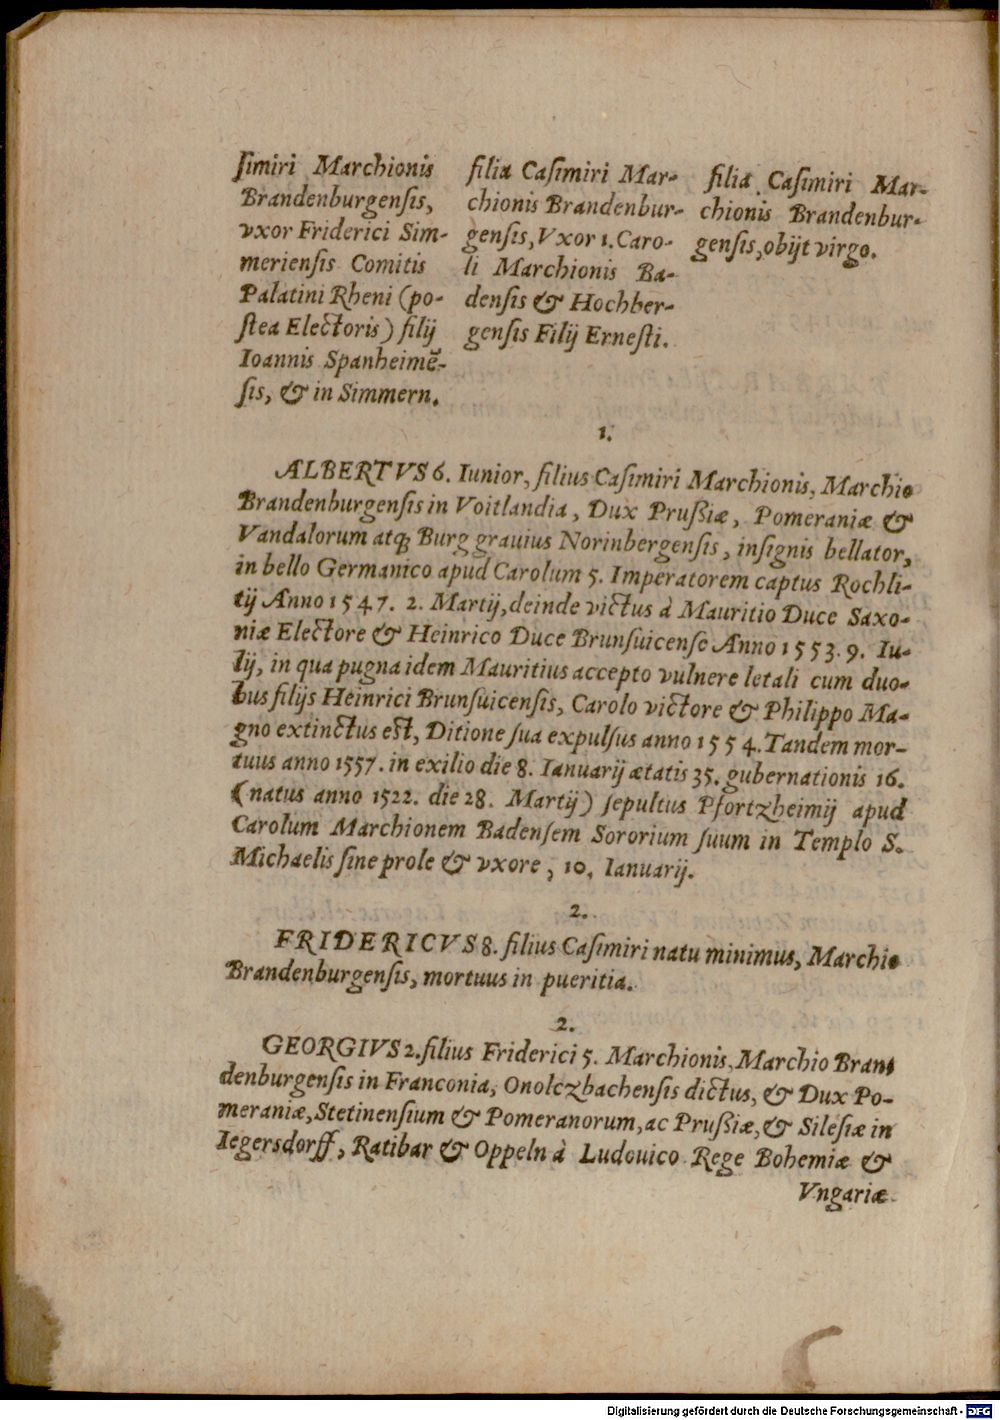 ſimiri Marchionis
Brandenburgenſis,
vxor Friderici Sim-
merienſis Comitis
Palatini Rheni (po-
ſtea Electoris) filij
Ioannis Spanheimẽ-
ſis, & in Simmern.
filia Caſimiri Mar-
chionis Brandenbur-
genſis, Vxor 1. Caro-
li Marchionis Ba-
denſis & Hochber-
genſis Filij Erneſti.
filia Caſimiri Mar-
chionis Brandenbur-
genſis, obijt virgo.
1.
ALBERTVS 6. Iunior, filius Caſimiri Marchionis, Marchio
Brandenburgenſis in Voitlandia, Dux Prußiæ, Pomeraniæ &
Vandalorum atq; Burggrauius Norinbergenſis, inſignis bellator,
in bello Germanico apud Carolum 5. Imperatorem captus Rochli-
tij Anno 1547. 2. Martij, deinde victus à Mauritio Duce Saxo-
niæ Electore & Heinrico Duce Brunſuicenſe Anno 1553. 9. Iu-
lij, in qua pugna idem Mauritius accepto vulnere letali cum duo-
bus filijs Heinrici Brunſuicenſis, Carolo victore & Philippo Ma-
gno extinctus est, Ditione ſua expulſus anno 1554. Tandem mor-
tuus anno 1557. in exilio die 8. Ianuarij ætatis 35. gubernationis 16.
(natus anno 1522. die 28. Martij) ſepultus Pfortzheimij apud
Carolum Marchionem Badenſem Sororium ſuum in Templo S.
Michaelis ſine prole & vxore, 10. Ianuarij.
2.
FRIDERICVS 8. filius Caſimiri natu minimus, Marchio
Brandenburgenſis, mortuus in pueritia.
2.
GEORGIVS 2. filius Friderici 5. Marchionis, Marchio Bran-
denburgenſis in Franconia, Onolczbachenſis dictus, & Dux Po-
meraniæ, Stetinenſium & Pomeranorum, ac Prußiæ, & Sileſiæ in
Iegersdorff, Ratibar & Oppeln à Ludouico Rege Bohemiæ &
Vngariæ
Digitalisierung gefördert durch die Deutsche Forschungsgemeinschaft - DFG